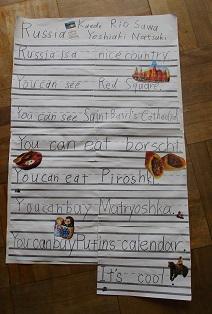 Kaede Rio Sawa
Russia Yoshiaki Natsuki
Russia is a nice country.
You can see Red Square.
You can see Saint Basil's Cathedral.
You can eat borscht.
You can eat Piroshki.
You can bay Matryoshka.
You can buy Putin's calendar.
It's cool!